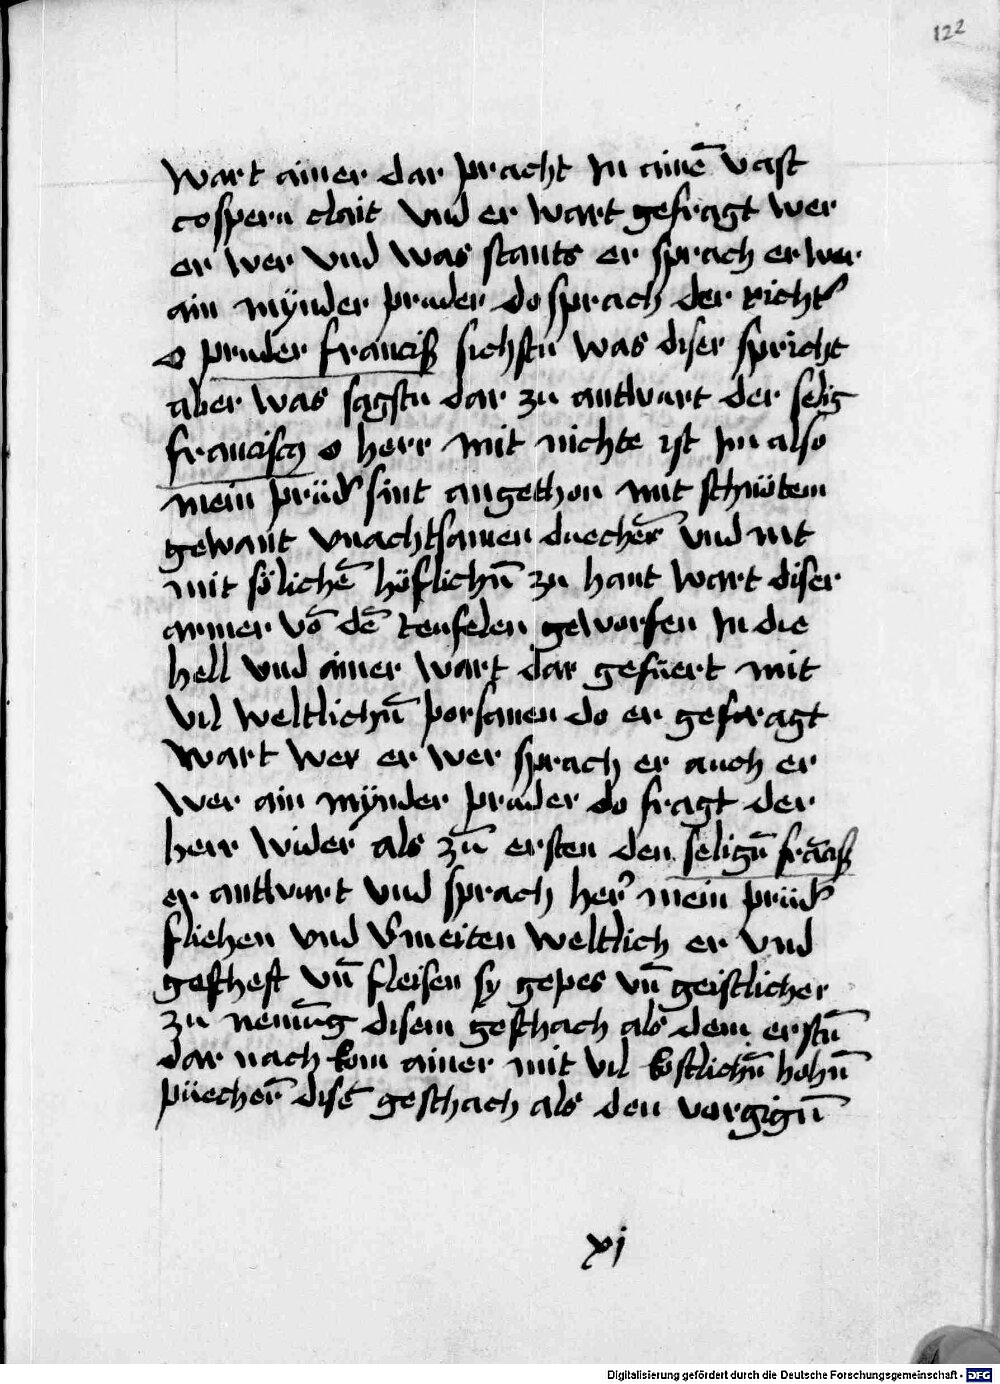 122
wart ainer dar pracht In ainē vast
cospern clait vnd er wart gefragt wer
er wer vnd was stants er sprach er wer
ain mÿnder pruder do sprach der richt͛
o pruder franciß sichstu was diser spricht
aber was sagstu dar zu antwurt der selig
franciscꝰ o herr mit nichte ist Im also
mein prüd͛ sint angethon mit schnötem
gewant vnachtsamen duechen̄ vnd nit
mit sölichē höflichn̄ zu hant wart diser
armer vō dē teufelen geworfen In die
hell vnd ainer wart dar gefüert mit
vil weltlichn̄ porsanen do er gefragt
wart wer er wer sprach er auch er
wer ain mÿnder pruder do fragt der
herr wider als zū ersten den selign̄ frāciß
er antwurt vnd sprach her͛ mein prüd͛
fliehen vnd v͛meiten weltlich er vnd
gescheft vn̄ fleisen sy gepes vn̄ geistlicher
zu nemūg disem geschach als dem erstn̄
dar nach kom ainer mit vil kostlichn̄ hohn̄
püechern̄ disē geschach als den vorgign̄
xj
Digitalisierung gefördert durch die Deutsche Forschungsgemeinschaft - DFG